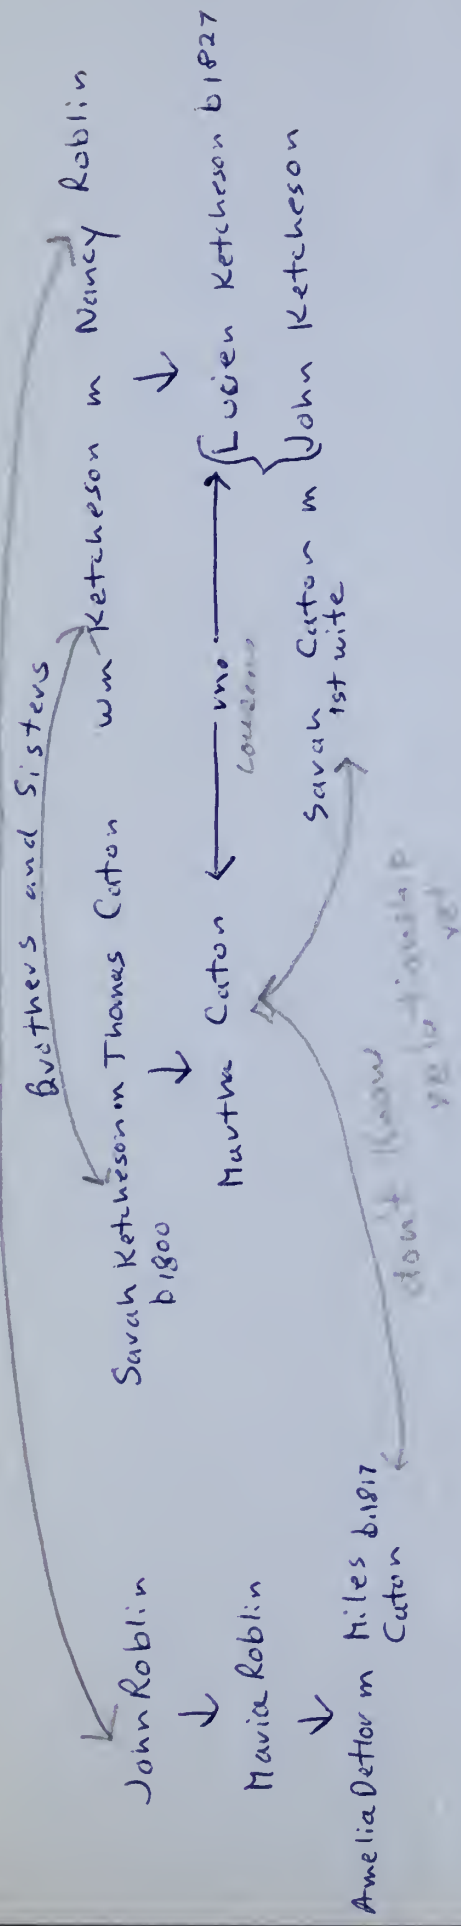 Brothers and Sisters
John Roblin
Sarah Ketcheson m Thomas Caton
b1800
Wm Ketcheson m Nancy Roblin
↓
↓
↓
Maria Roblin
Martha Caton
m
Cousins
Lucien Ketcheson b1827
John Ketcheson
Sarah Caton m
1st wife
↓
Amelia Detlor m Miles b.1817
Caton
don't know
relationship
yet